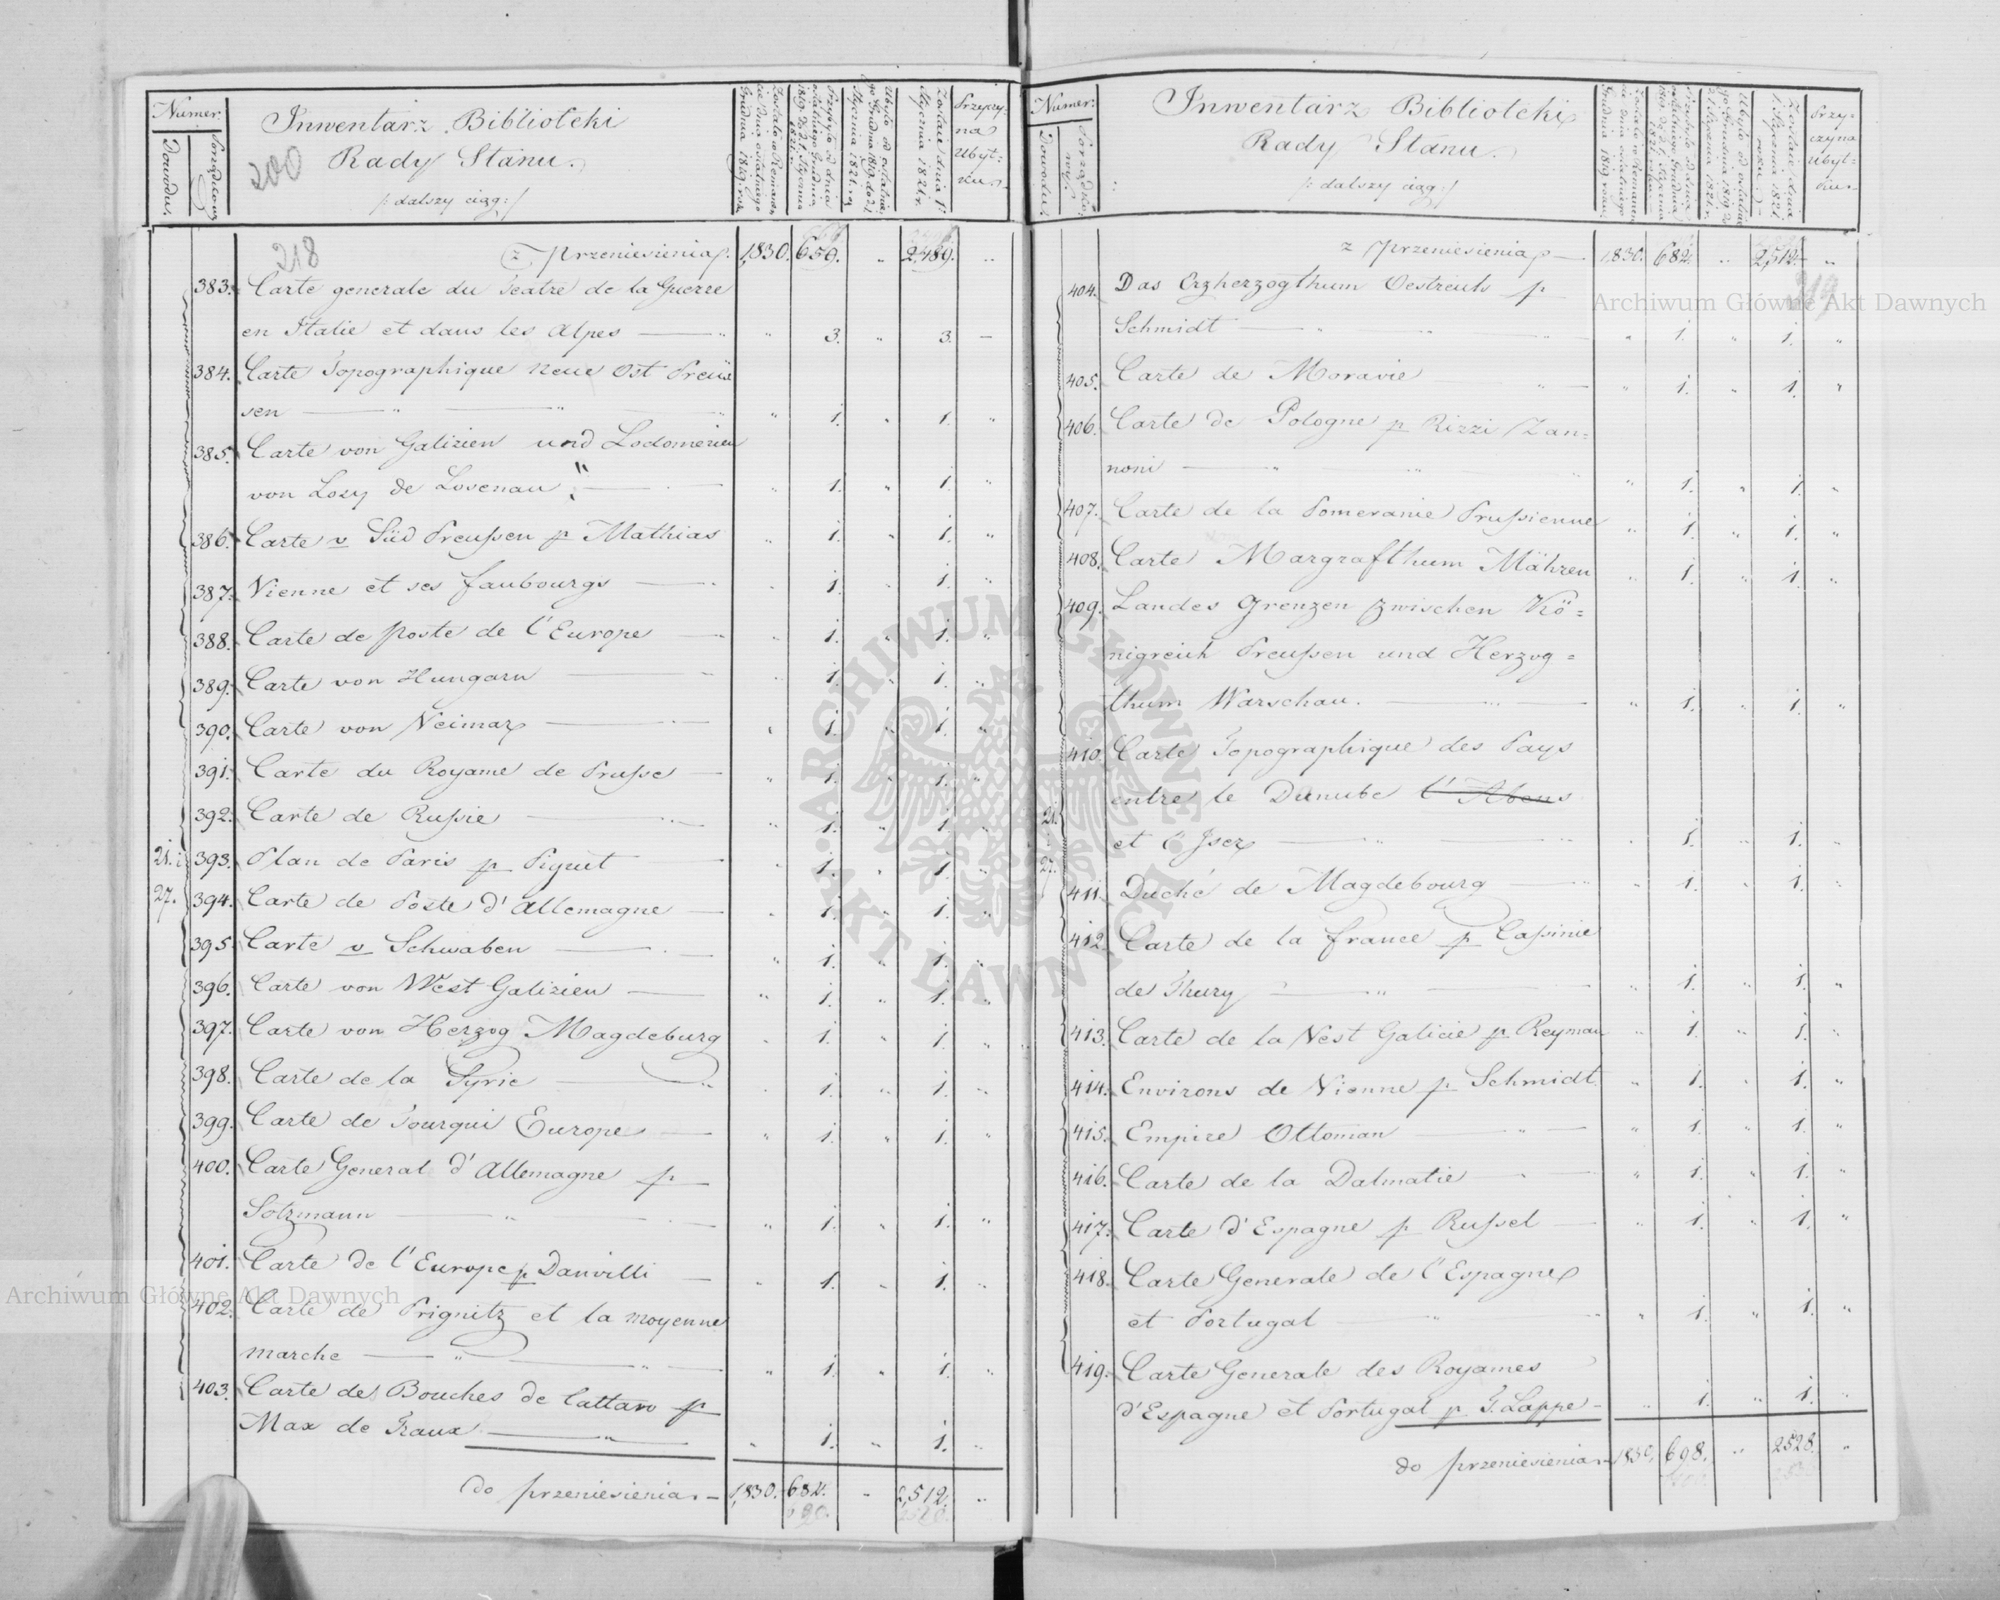 Numer.
Dowodu.
Porządkowy
Inwentarz Biblioteki
Rady Stanu.
/: dalszy ciąg :/
200
Zostało w Remanencie dnia ostatniego Grudnia 1819. roku
Przybyło od dnia ostatniego Grudnia 1819. do d. 1. Stycznia 1821. r.
Ubyło od ostatniego Grudnia 1819. do d. 1. Stycznia 1821. r.
Zostaie dnia 1. Stycznia 1821. r.
Przyczyna Ubytku
218
z przeniesienia. 1,830. 659. „ 2,489. „
383. Carte generale du Teatre de la Guerre
en Italie et dans les Alpes — „ „ 3. „ 3. —
384. Carte Topographique neue Ost Preüs
sen — „ — „ „ „ 1. „ 1. „
385. Carte von Galizien und Lodomerien
von Losy de Losenau „ — „ 1. „ 1. „
386. Carte v Süd Preussen p Mathias „ 1. „ 1. „
387. Vienne et ses faubourgs — „ „ 1. „ 1. „
388. Carte de poste de l'Europe „ „ 1. „ 1. „
389. Carte von Hungarn — „ „ 1. „ 1. „
390. Carte von Weimar — „ — „ 1. „ 1. „
391. Carte du Royame de Prusse — „ 1. „ 1. „
392. Carte de Russie — „ — „ 1. „ 1. „
21. i 393. Plan de Paris p Piquet — „ 1. „ 1. „
27. 394. Carte de Poste d'Allemagne — „ 1. „ 1. „
395. Carte v Schwaben — „ — „ 1. „ 1. „
396. Carte von West Galizien — „ 1. „ 1. „
397. Carte von Herzog Magdeburg „ 1. „ 1. „
398. Carte de la Syrie — „ „ 1. „ 1. „
399. Carte de Tourqui Europe — „ 1. „ 1. „
400. Carte General d'Allemagne p
Sotzmann — „ — „ 1. „ 1. „
401. Carte de l'Europe p Danvilli — „ 1. „ 1. „
402. Carte de Prignitz et la moyenne
marche — „ — „ — „ 1. „ 1. „
403. Carte des Bouches de Cattaro p
Max de Traux — „ — „ 1. „ 1. „
do przeniesienia. — 1,830. 682. „ 2,512. „
690.
Numer.
Dowodu.
Porządkowy
Inwentarz Biblioteki
Rady Stanu.
/: dalszy ciąg :/
Zostało w Remanencie dnia ostatniego Grudnia 1819 roku.
Przybyło od dnia ostatniego Grudnia 1819. do d. 1. Stycznia 1821. roku.
Ubyło od ostatniego Grudnia 1819 do d. 1. Stycznia 1821. r.
Zostaie dnia 1. Stycznia 1821. roku.
Przyczyna Ubytku.
219
z przeniesienia — 1,830. 682. „ 2,512. „
404. Das Erzherzogthum Oestreich p
Schmidt — „ „ „ 1. „ 1. „
405. Carte de Moravie „ — „ 1. „ 1. „
406. Carte de Pologne p Rizzi Zan=
noni — „ „ „ „ 1. „ 1. „
407. Carte de la Pomeranie Prussienne „ 1. „ 1. „
408. Carte Margrafthum Mähren „ 1. „ 1. „
409. Landes Grenzen zwischen Kö=
nigreich Preussen und Herzog=
thum Warschau. — „ — „ 1. „ 1. „
410. Carte Topographique des Pays
entre le Danube l'Abens
21. i
et l'Iser — „ „ „ 1. „ 1. „
27.
411. Duché de Magdebourg — „ „ 1. „ 1. „
412. Carte de la france p Cassinie
de Thury — „ — „ 1. „ 1. „
413. Carte de la West Galicie p Reyman „ 1. „ 1. „
414. Environs de Vienne p Schmidt „ 1. „ 1. „
415. Empire Ottoman — „ — „ 1. „ 1. „
416. Carte de la Dalmatie — „ — „ 1. „ 1. „
417. Carte d'Espagne p Russel — „ 1. „ 1. „
418. Carte Generale de l'Espagne
et Portugal — „ „ „ 1. „ 1. „
419. Carte Generale des Royames
d'Espagne et Portugal p T. Lappe — „ 1. „ 1. „
do przeniesienia — 1830. 698. „ 2528. „
Archiwum Główne Akt Dawnych
Archiwum Główne Akt Dawnych
ARCHIWUM GŁÓWNE AKT DAWNYCH